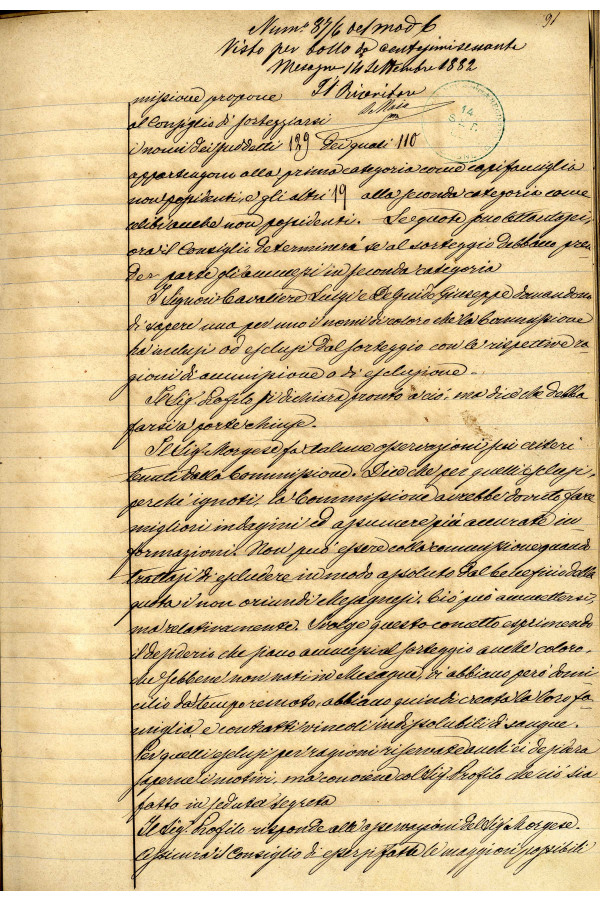 91
Num.º 87/6 del mod 6
Visto per bollo da centesimi sessanta
Mesagne 14 Settembre 1882
Il Ricevitore
De Masi
14
SET.
missione propone
al Consiglio di sorteggiarsi
i nomi dei suddetti 129 dei quali 110
appartengono alla prima categoria come capifamiglia
non possidenti, e gli altri 19 alla seconda categoria come
celibi anche non possidenti. – Se quote sono
ora il Consiglio determinerà se al sorteggio debbano pren
der parte gli ammessi in seconda categoria
I Signori Cavaliere Luigi e De Guido Giuseppe domandono
di sapere uno per uno i nomi di coloro che la Commissione
ha inclusi od esclusi dal sorteggio con le rispettive ra
gioni di ammissione o di esclusione. –
Il Sig.r Profilo si dichiara pronto a ciò, ma dice che debba
farsi a porte chiuse.
Il Sig.r Morgese fa talune osservazioni sui criteri
tenuti dalla Commissione. Dice che per quelli esclusi,
perché ignoti, la Commissione avrebbe dovuto fare
migliori indagini ed assumere più accurate in
formazioni. Non può essere colla commissione quando
trattasi di escludere in modo assoluto dal beneficio della
quota i non oriundi Mesagnesi. Ciò può ammettersi,
ma relativamente. Svolge questo concetto esprimendo
il desiderio che siano ammessi al sorteggio anche coloro,
che sebbene non nati in Mesagne, vi abbiano però domi
cilio da tempo remoto, abbiano quindi creata la loro fa
miglia, e contratti vincoli indissolubili di sangue.
Per quelli esclusi per ragioni riservate anch'ei desidera
saperne i motivi, ma conviene col Sig.r Profilo che ciò sia
fatto in seduta segreta
Il Sig.r Profilo risponde alle osservazioni del Sig.r Morgese.
Assicura il Consiglio di essersi fatte le maggiori possibili